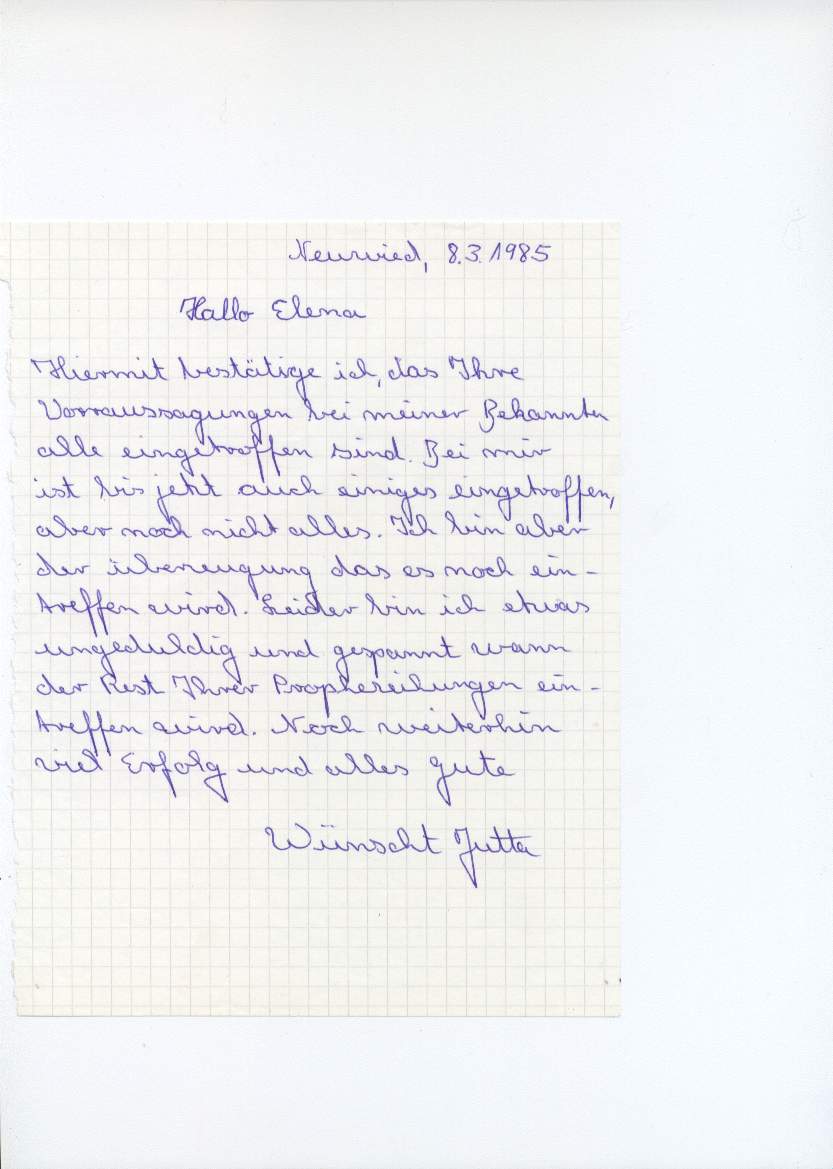 Neuwied, 8.3.1985
Hallo Elena
Hiermit bestätige ich, das Ihre
Vorraussagungen bei meiner Bekannten
alle eingetroffen sind. Bei mir
ist bis jetzt auch einiges eingetroffen,
aber noch nicht alles. Ich bin aber
der überzeugung das es noch ein-
treffen wird. Leider bin ich etwas
ungeduldig und gespannt wann
der Rest Ihrer Prophezeilungen ein-
treffen wird. Noch weiterhin
viel Erfolg und alles gute
Wünscht Jutta